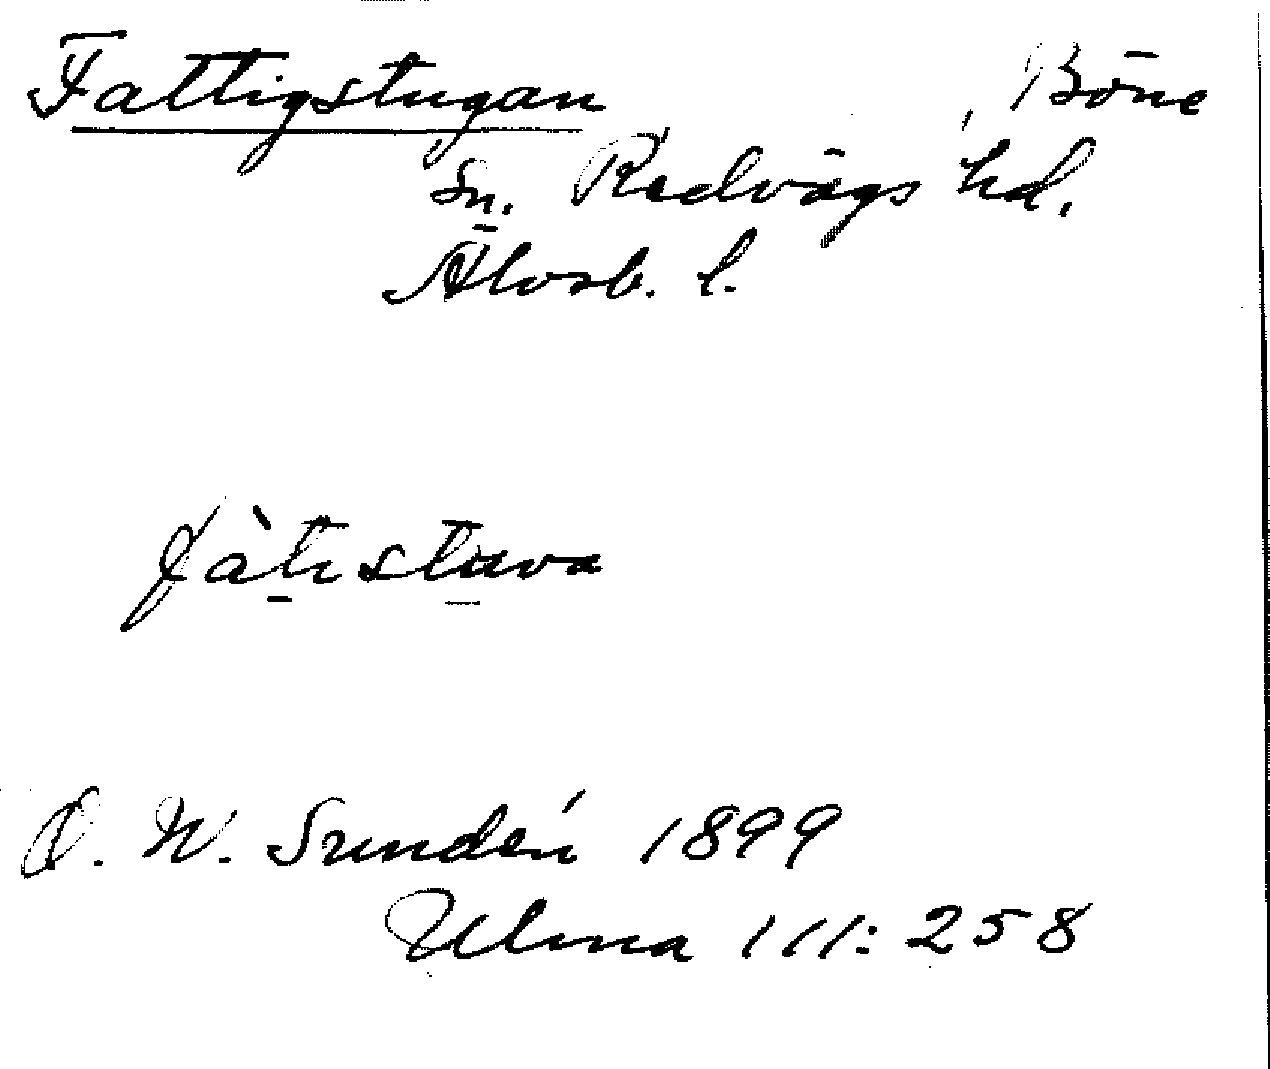 Fattigstugan , Böne
sn. Redvägs hd.
Älvsb. l.
fàtistuva
D. W. Sundén 1899
Ulma 111:258